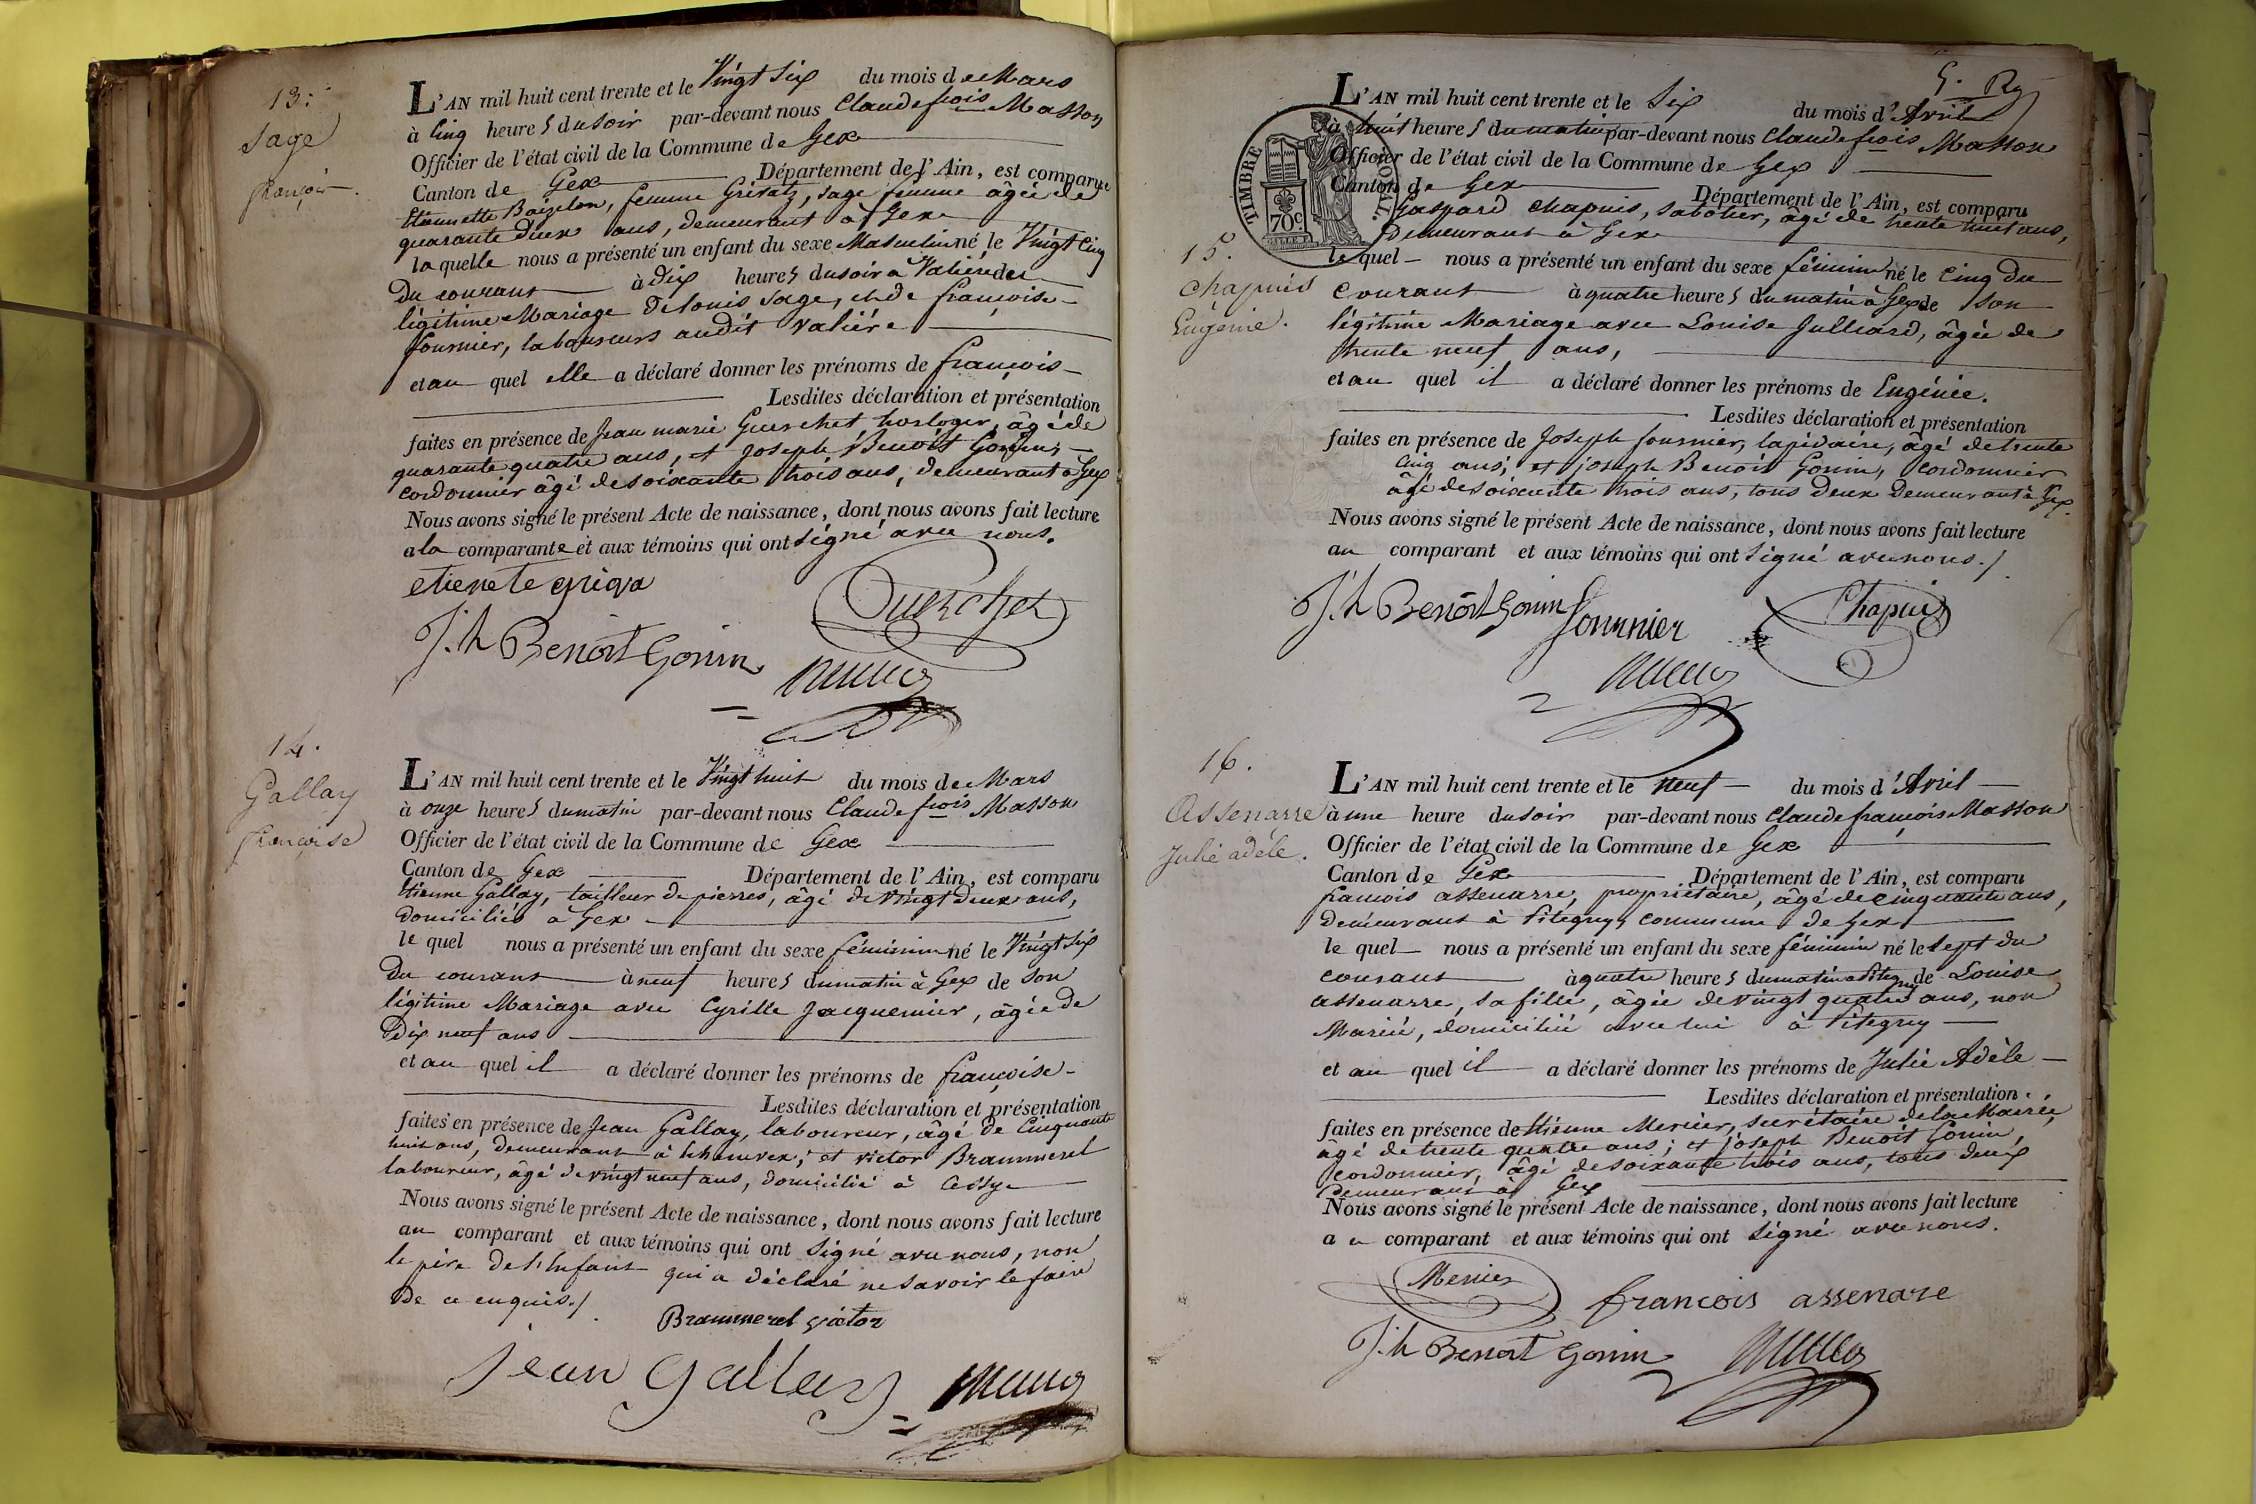 13.
Sage
françois.
L'AN mil huit cent trente et le Vingt Six du mois de Mars
à Cinq heures du soir par-devant nous Claude fçois Masson
Officier de l'état civil de la Commune de Gex
Canton de Gex Département de l'Ain, est comparue
Etiennette femme Grivatz, sage femme âgée de
quarante deux ans, demeurant à Gex
la quelle nous a présenté un enfant du sexe Masculin né le Vingt Cinq
du courant à Dix heures du soir à Valière de
légitime Mariage de louis Sage, et de françoise
fournier, laboureurs audit Valière
et au quel elle a déclaré donner les prénoms de françois
Lesdites déclaration et présentation
faites en présence de Jean marie Guerchet, horloger, âgé de
quarante quatre ans, et joseph Benoit Gonin,
cordonnier âgé de soixante trois ans, demeurant à Gex
Nous avons signé le présent Acte de naissance, dont nous avons fait lecture
a la comparante et aux témoins qui ont signé avec nous.
etienete griva
Guerchet
J.h Benoit Gonin
14.
Gallay
françoise
L'AN mil huit cent trente et le Vingt huit du mois de Mars
à onze heures du matin par-devant nous Claude fçois Masson
Officier de l'état civil de la Commune de Gex
Canton de Gex Département de l'Ain, est comparu
Etienne Gallay, tailleur de pierres, âgé de vingt deux ans,
domicilié à Gex
le quel nous a présenté un enfant du sexe féminin né le Vingt Six
du courant à neuf heures du matin à Gex de son
légitime Mariage avec Cyrille Jacquemier, âgée de
Dix neuf ans
et au quel il a déclaré donner les prénoms de françoise
Lesdites déclaration et présentation
faites en présence de Jean Gallay, laboureur, âgé de Cinquante
huit ans, demeurant à et victor Brammerel
laboureur, âgé de vingt neuf ans, domicilié à Cessy
Nous avons signé le présent Acte de naissance, dont nous avons fait lecture
au comparant et aux témoins qui ont signé avec nous, non
le père de l'Enfant qui a déclaré ne savoir le faire
de ce enquis./.
Brammerel victor
jean gallay
5. Ry
TIMBRE ROYAL.
70 c.
L'AN mil huit cent trente et le Six du mois d'Avril
à huit heures du matin par-devant nous Claude fçois Masson
Officier de l'état civil de la Commune de Gex
Canton de Gex Département de l'Ain, est comparu
Gaspard Chapuis, sabotier, âgé de trente huit ans,
Demeurant à Gex
15.
Chapuis
Eugénie.
le quel nous a présenté un enfant du sexe féminin né le Cinq du
Courant à quatre heures du matin à Gex de son
légitime Mariage avec Louise Julliard, âgée de
trente neuf ans,
et au quel il a déclaré donner les prénoms de Eugénie.
Lesdites déclaration et présentation
faites en présence de Joseph fournier, lapidaire, âgé de trente
cinq ans; et joseph Benoit Gonin, cordonnier
âgé de soixante trois ans, tous deux demeurant à Gex.
Nous avons signé le présent Acte de naissance, dont nous avons fait lecture
au comparant et aux témoins qui ont signé avec nous./.
J.h Benoit Gonin fournier Chapuis
16.
Assenarre
Julie adèle.
L'AN mil huit cent trente et le neuf du mois d'Avril
à une heure du soir par-devant nous Claude françois Masson
Officier de l'état civil de la Commune de Gex
Canton de Gex Département de l'Ain, est comparu
françois assenarre, propriétaire, âgé de cinquante ans,
demeurant à Pitegny, commune de Gex
le quel nous a présenté un enfant du sexe féminin né le sept du
courant à quatre heures du matin à de Louise
assenarre, sa fille, âgée de vingt quatre ans, non
Mariée, domiciliée avec lui à Pitegny
et au quel il a déclaré donner les prénoms de Julie Adèle
Lesdites déclaration et présentation
faites en présence de Etienne Mercier, secrétaire de la Mairie,
âgé de trente quatre ans; et joseph Benoit Gonin,
cordonnier, âgé de soixante trois ans, tous deux
Demeurant à Gex
Nous avons signé le présent Acte de naissance, dont nous avons fait lecture
au comparant et aux témoins qui ont signé avec nous.
Mercier
francois assenare
J.h Benoit Gonin